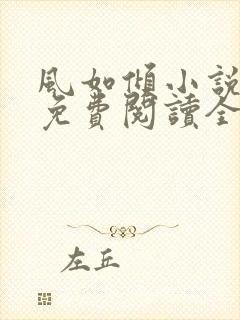 風如傾小說
免費閱讀全
左丘